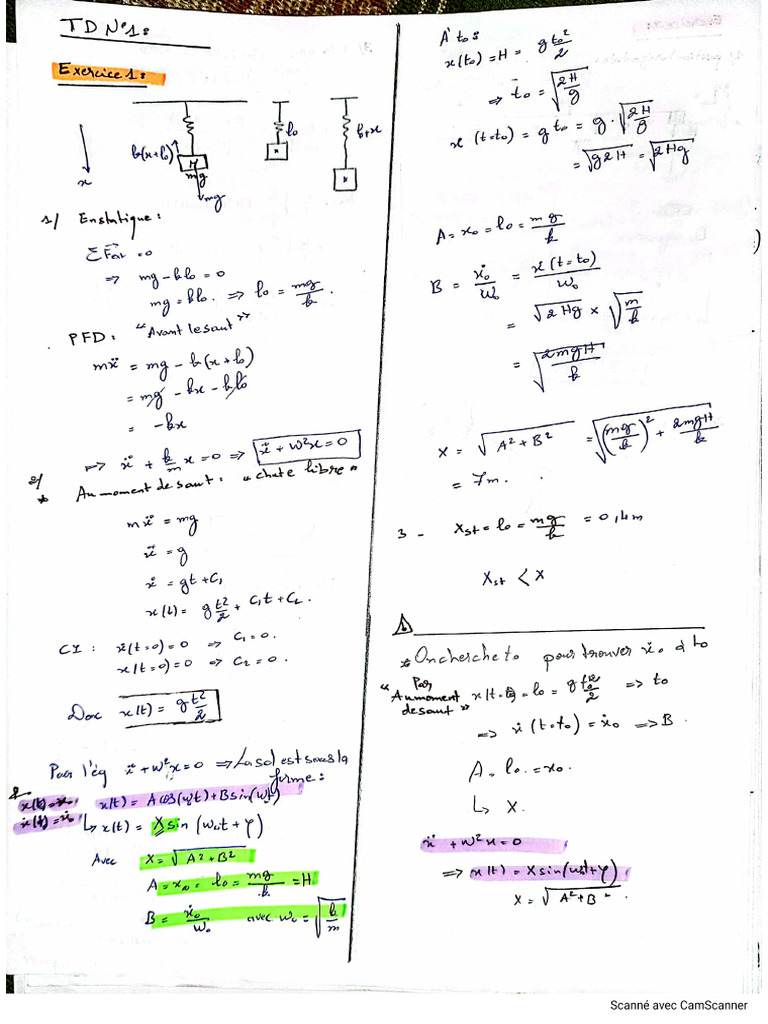 TD N°1:
Exercice 1:
k(x+l₀)
M
mg
mg
x
l₀
l₀+x
1/ En statique:
ΣF̅ₑₓₜ = 0
⇒ mg - kl₀ = 0
mg = kl₀. ⇒ l₀ = mg/k.
PFD: "Avant le saut"
mẍ = mg - k(x+l₀)
= mg - kx - kl₀
= -kx
⇒ ẍ + k/m x = 0 ⇒ ẍ + ω²x = 0
2/
* Au moment de saut: "chute libre"
mẍ = mg
ẍ = g
ẋ = gt + C₁
x(t) = g t²/2 + C₁t + C₂.
CI: ẋ(t=0) = 0 ⇒ C₁ = 0.
x(t=0) = 0 ⇒ C₂ = 0.
Donc x(t) = g t²/2
Par l'éq ẍ + ω²x = 0 ⇒ La sol est sous la
forme:
x(t) = x₀ x(t) = A cos(ωt) + B sin(ωt)
ẋ(t) = ẋ₀ ↳ x(t) = X sin(ω₀t + φ)
Avec X = √(A² + B²)
A = x₀ = l₀ = mg/k = H
B = ẋ₀/ω₀ avec ω₀ = √(k/m)
A t₀:
x(t₀) = H = g t₀²/2
⇒ t₀ = √(2H/g)
ẋ(t=t₀) = g t₀ = g·√(2H/g)
= √(g2H) = √(2Hg)
A = x₀ = l₀ = mg/k
B = ẋ₀/ω₀ = ẋ(t=t₀)/ω₀
= √(2Hg) × √(m/k)
= √(2mgH/k)
X = √(A² + B²) = √((mg/k)² + 2mgH/k)
= 7m.
3 - Xst = l₀ = mg/k = 0,4m
Xst < X
* On cherche t₀ pour trouver ẋ₀ à t₀
Par
"Au moment x(t=t₀) = l₀ = g t₀²/2 ⇒ t₀
de saut" ⇒ ẋ(t=t₀) = ẋ₀ ⇒ B.
A = l₀ = x₀.
↳ X.
ẍ + ω²x = 0
⇒ x(t) = X sin(ω₀t + φ)
X = √(A² + B²).
Scanné avec CamScanner